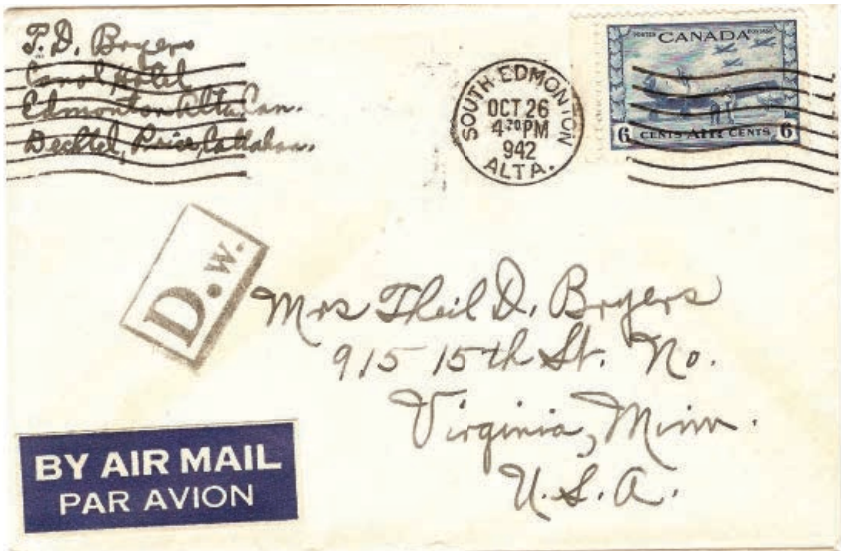 T. D. Bryers
Canol Hotel
Edmonton Alta Can.
Bechtel, Price, Callahan.
SOUTH EDMONTON
OCT 26
4 30 PM
942
ALTA.
POSTES CANADA POSTAGE
6 CENTS AIR CENTS 6
D.W.
Mrs Theil D. Bryers
915 15th St. No.
Virginia, Minn.
U.S.A.
BY AIR MAIL
PAR AVION